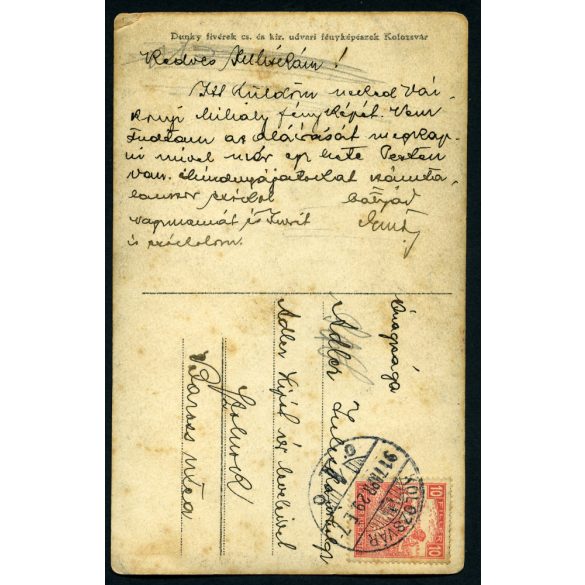 Dunky fivérek cs. és kir. udvari fényképészek Kolozsvár
Kedves Juliskám!
Itt küldöm neked Vár-
konyi Mihály fényképét. Nem
tudtam az aláírását megkap-
ni mivel már egy hete Pesten
van. Mindnyájatokat számta-
lanszor csókol bátyád
nagymamát és Turit Ernő
is csókolom.
Őnagysága
Adler Juliska
Adler Lipót úr leveleivel
Szolnok
Baross utca
KOLOZSVÁR
10
10